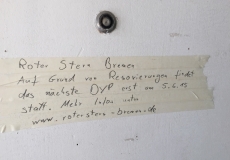 Roter Stern Bremen
Auf Grund von Renovierungen findet
das nächste DVP erst am 5.6.15
statt. Mehr Infos unter
www.roterstern-bremen.de